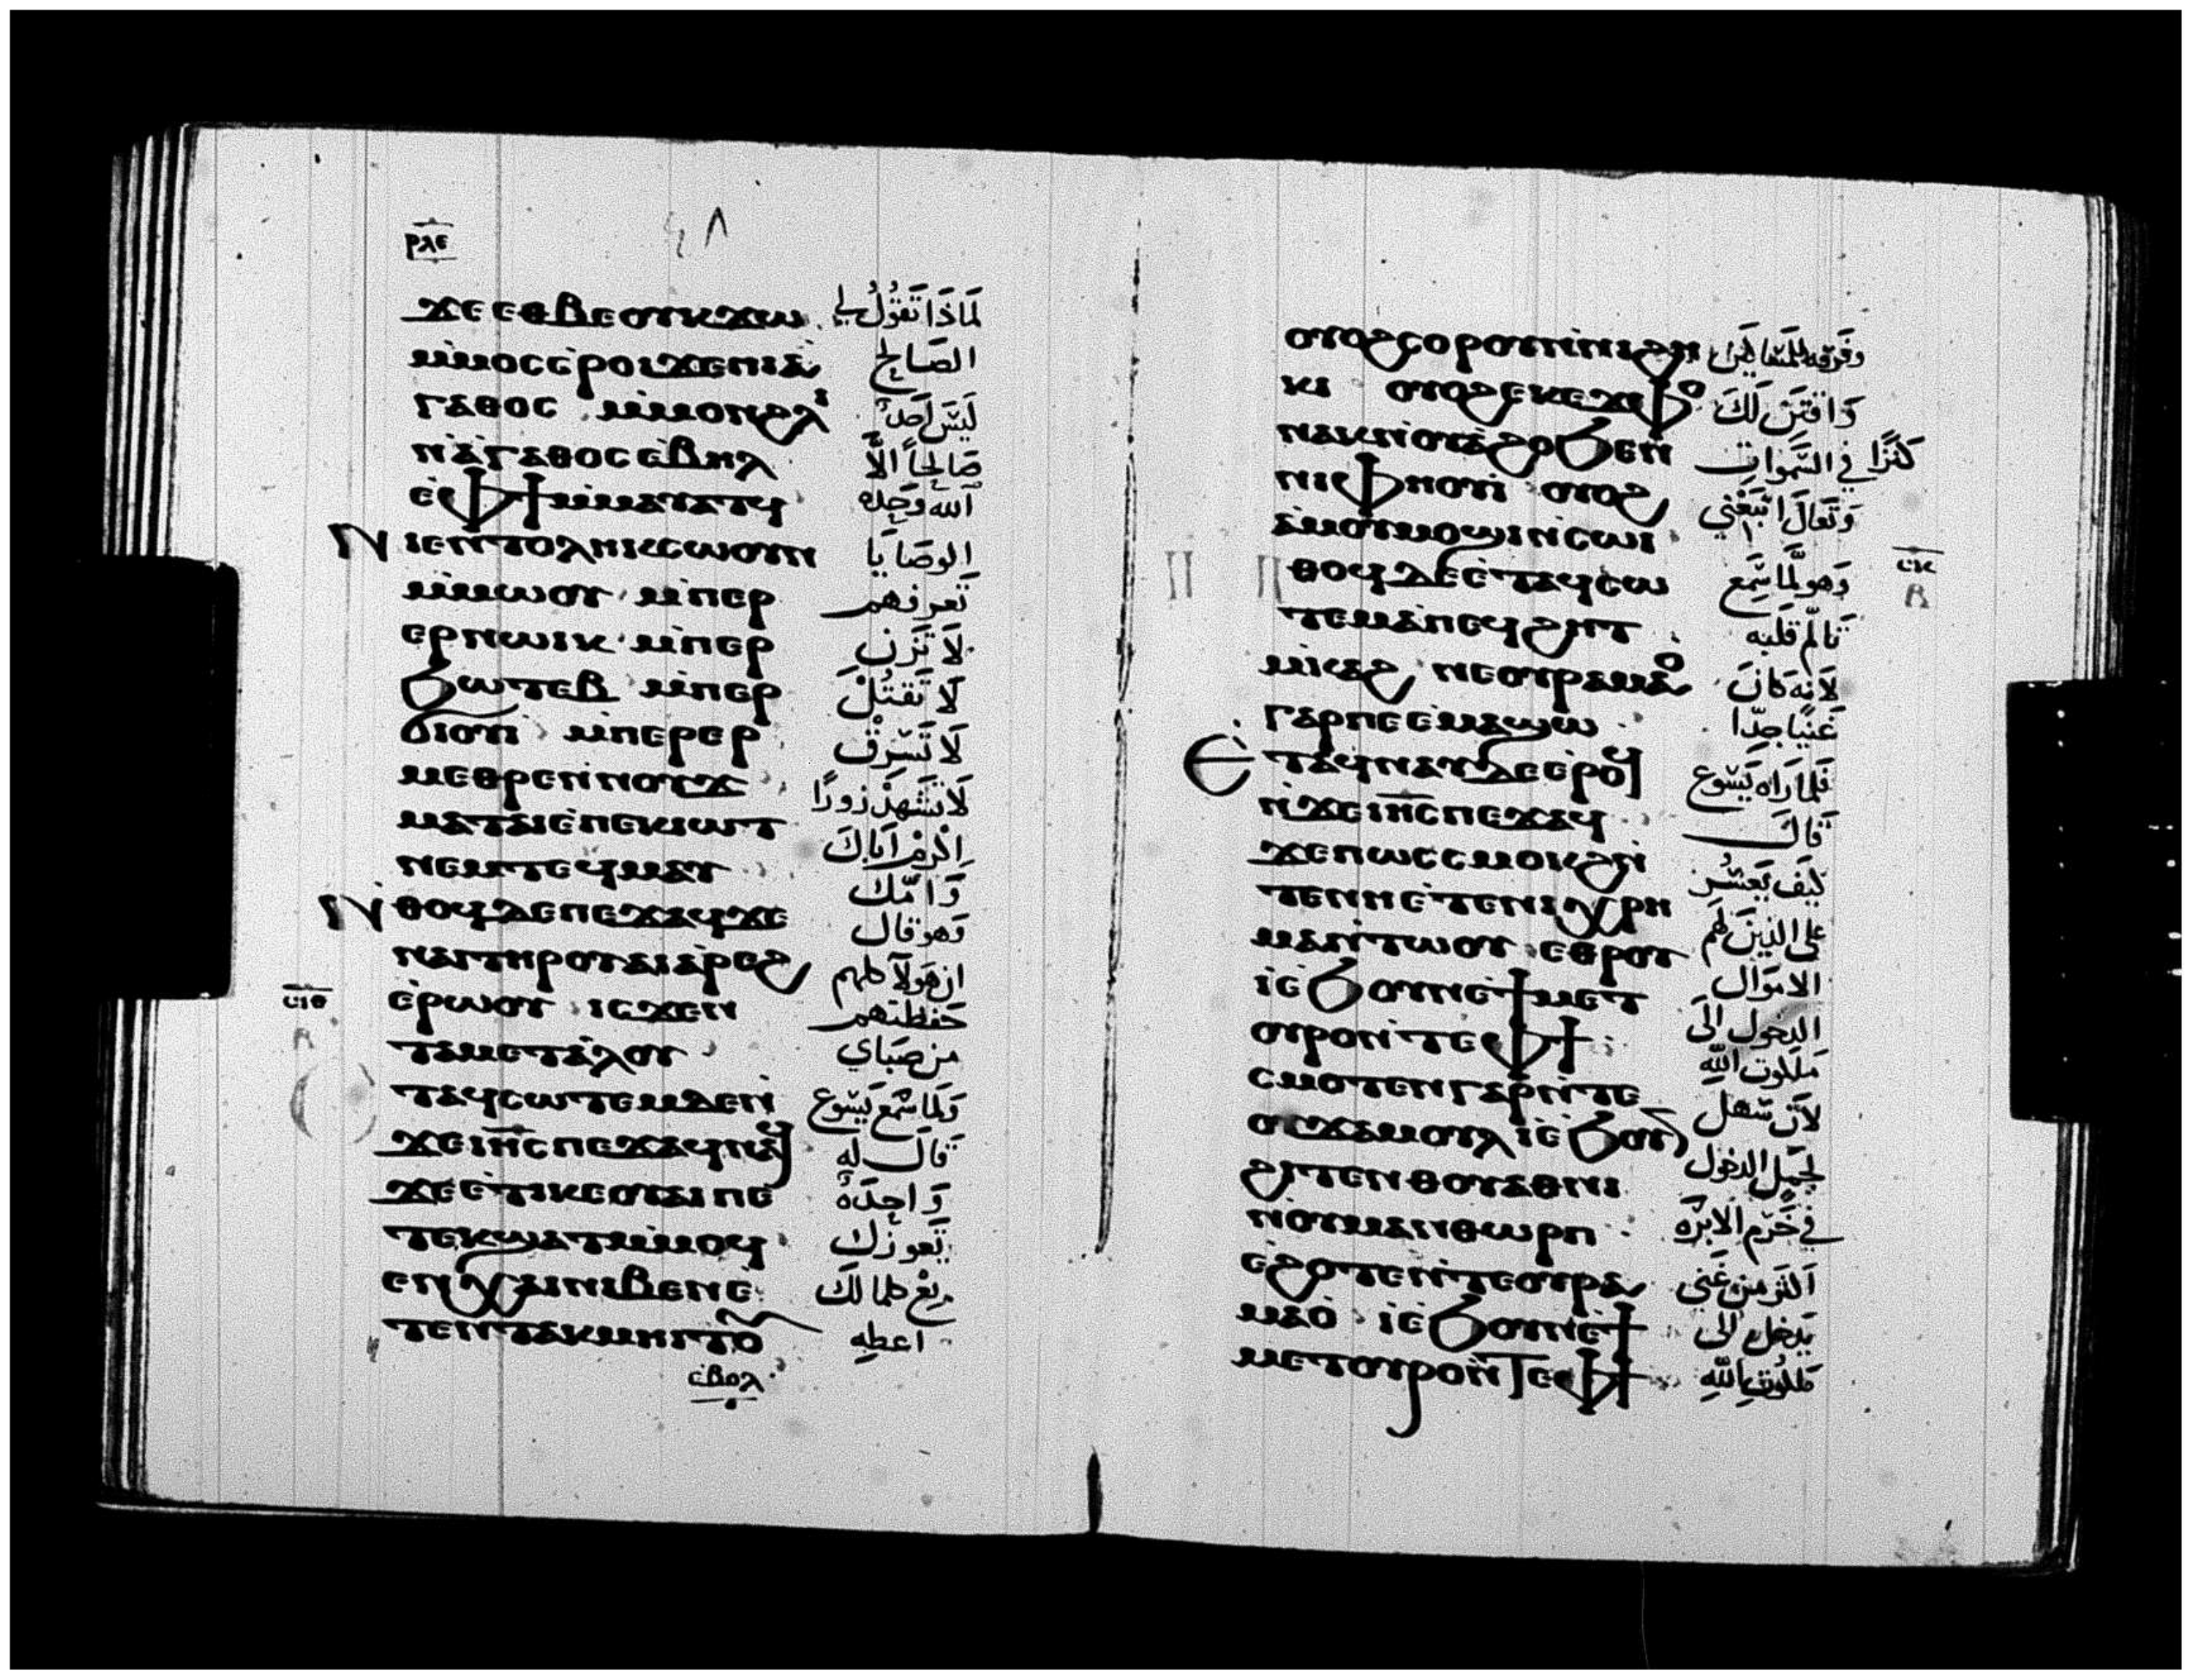 ⲣⲗⲉ ٤٨
ϫⲉ ⲉⲑⲃⲉⲟⲩ ⲕϫⲱ لَمَاذَا تَقوُلُ لي
ⲙ̀ⲙⲟⲥ ⲉ̀ⲣⲟⲓ ϫⲉ ⲡⲓⲁ̀ الصَالِح
ⲅⲁⲑⲟⲥ ⲙ̀ⲙⲟⲛ ϩⲗⲓ لَيسَ اَحَدٌ
ⲛ̀ⲁ̀ⲅⲁⲑⲟⲥ ⲉ̀ⲃⲏⲗ صَالِحاً الاَّ
ⲉ̀ⲫϯ ⲙ̀ⲙⲁⲩⲁⲧϥ الله وَحِده
Ⲛⲓⲉⲛⲧⲟⲗⲏ ⲕⲥⲱⲟⲩⲛ الوصَايَا
ⲙ̀ⲙⲱⲟⲩ ⲙ̀ⲡⲉⲣ تَعرفهم
ⲉⲣⲛⲱⲓⲕ ⲙ̀ⲡⲉⲣ لَا تَزنِ
ϧⲱⲧⲉⲃ ⲙ̀ⲡⲉⲣ لَا تَقتُلْ
ϭⲓⲟⲩⲓ̀ ⲙ̀ⲡⲉⲣⲉⲣ لَا تَسرِقْ
ⲙⲉⲑⲣⲉ ⲛ̀ⲛⲟⲩϫ لَا تَشهَدْ زورًا
ⲙⲁⲧⲁⲓⲉ̀ ⲡⲉⲕⲓⲱⲧ اِكْرِمْ اَبَاكَ
ⲛⲉⲙ ⲧⲉϥⲙⲁⲩ وَامّك
Ⲛ̀ⲑⲟϥ ⲇⲉ ⲡⲉϫⲁϥ ϫⲉ وَهو قال
ⲛⲁⲓ ⲧⲏⲣⲟⲩ ⲁⲓⲁ̀ⲣⲉϩ ان هَولآ كلهم
ⲥⲓⲑ ⲉ̀ⲣⲱⲟⲩ ⲓⲥϫⲉⲛ حَفظتهم
ⲧⲁⲙⲉⲧⲁ̀ⲗⲟⲩ من صَبَاي
ⲧⲁϥⲥⲱⲧⲉⲙ ⲇⲉ ⲛ̀ وَلما سَمع يَسُوع
ϫⲉ ⲓⲏⲥ ⲡⲉϫⲁϥ ⲛⲁϥ قَالَ لَه
ϫⲉ ⲉ̀ⲧⲓ ⲕⲉⲟⲩⲁⲓ ⲡⲉ وَاحِدَةٌ
ⲧⲉⲕϣⲁⲧ ⲙ̀ⲙⲟϥ تَعوزك
ⲉⲛⲭⲁⲓ ⲛⲓⲃⲉⲛ ⲉ̀ بِعْ كلما لَكَ
ⲧⲉⲛⲧⲁⲕ ⲙⲏⲓⲧⲟⲩ اعطِه
ⲉ̀ⲃⲟⲗ
ⲟⲩⲟϩ ⲥⲟⲣⲟⲩ ⲛ̀ⲛⲓϩⲏ وَفَرقه للمسَاكين
ⲕⲓ ⲟⲩⲟϩ ⲉⲕⲉϫⲫⲟ وَاقتَنِ لَكَ
ⲛⲁⲕ ⲛ̀ⲟⲩⲁ̀ϩⲟ ϧⲉⲛ كَنزًا في السَّموات
ⲛⲓⲫⲏⲟⲩⲓ̀ ⲟⲩⲟϩ وَتَعالَ اتبَعْني
ⲁ̀ⲙⲟⲩ ⲙⲟϣⲓ ⲛ̀ⲥⲱⲓ
ⲑⲟϥ ⲇⲉ ⲉ̀ⲧⲁϥⲥⲱ وَهو لَّمَا سَمع ⲥⲕ
ⲧⲉⲙ ⲁ̀ ⲡⲉϥϩⲏⲧ تَألّم قَلبَه
ⲙ̀ⲕⲁϩ ⲛⲉⲟⲩⲣⲁⲙⲁⲟ̀ لاَنَه كَانَ
ⲅⲁⲣ ⲡⲉ ⲉ̀ⲙⲁϣⲱ غَنيًا جدًّا
Ⲉ̀ⲧⲁϥⲛⲁⲩ ⲇⲉ ⲉ̀ⲣⲟϥ فَلمَا رَاه يَسُوع
ⲛ̀ϫⲉ ⲓⲏⲥ ⲡⲉϫⲁϥ قَالَ
ϫⲉ ⲡⲱⲥ ⲥⲙⲟⲕϩ ⲛ̀ كَيفَ يَعسُر
ⲧⲉⲛ ⲛⲏⲉ̀ⲧⲉ ⲛⲓⲭⲣⲏ عَلى الذينَ لَهُم
ⲙⲁ ⲛ̀ⲧⲱⲟⲩ ⲉⲑⲣⲟⲩ الامَوال
ⲓ̀ⲉ̀ϧⲟⲩⲛ ⲉ̀ϯⲙⲉⲧ الدخول الَى
ⲟⲩⲣⲟ ⲛ̀ⲧⲉ ⲫϯ مَلكوت اللهِ
ⲥⲙⲟⲧⲉⲛ ⲅⲁⲣ ⲛ̀ⲧⲉ لاَن سَهل
ⲟⲩϫⲁⲙⲟⲩⲗ ⲓ̀ⲉ̀ϧⲟⲩⲛ لجَمل الدخول
ϩⲓⲧⲉⲛ ⲑⲟⲩⲁⲑⲛⲓ في خَرم الابرَه
ⲛ̀ⲟⲩⲙⲁⲛⲑⲱⲣⲡ
ⲉϩⲟⲧⲉ ⲛ̀ⲧⲉ ⲟⲩⲣⲁ اَكثر من غَني
ⲙⲁⲟ̀ ⲓ̀ⲉ̀ϧⲟⲩⲛ ⲉ̀ϯ يَدخل الَى
ⲙⲉⲧⲟⲩⲣⲟ ⲛ̀ⲧⲉ ⲫϯ مَلكُوت اللهِ